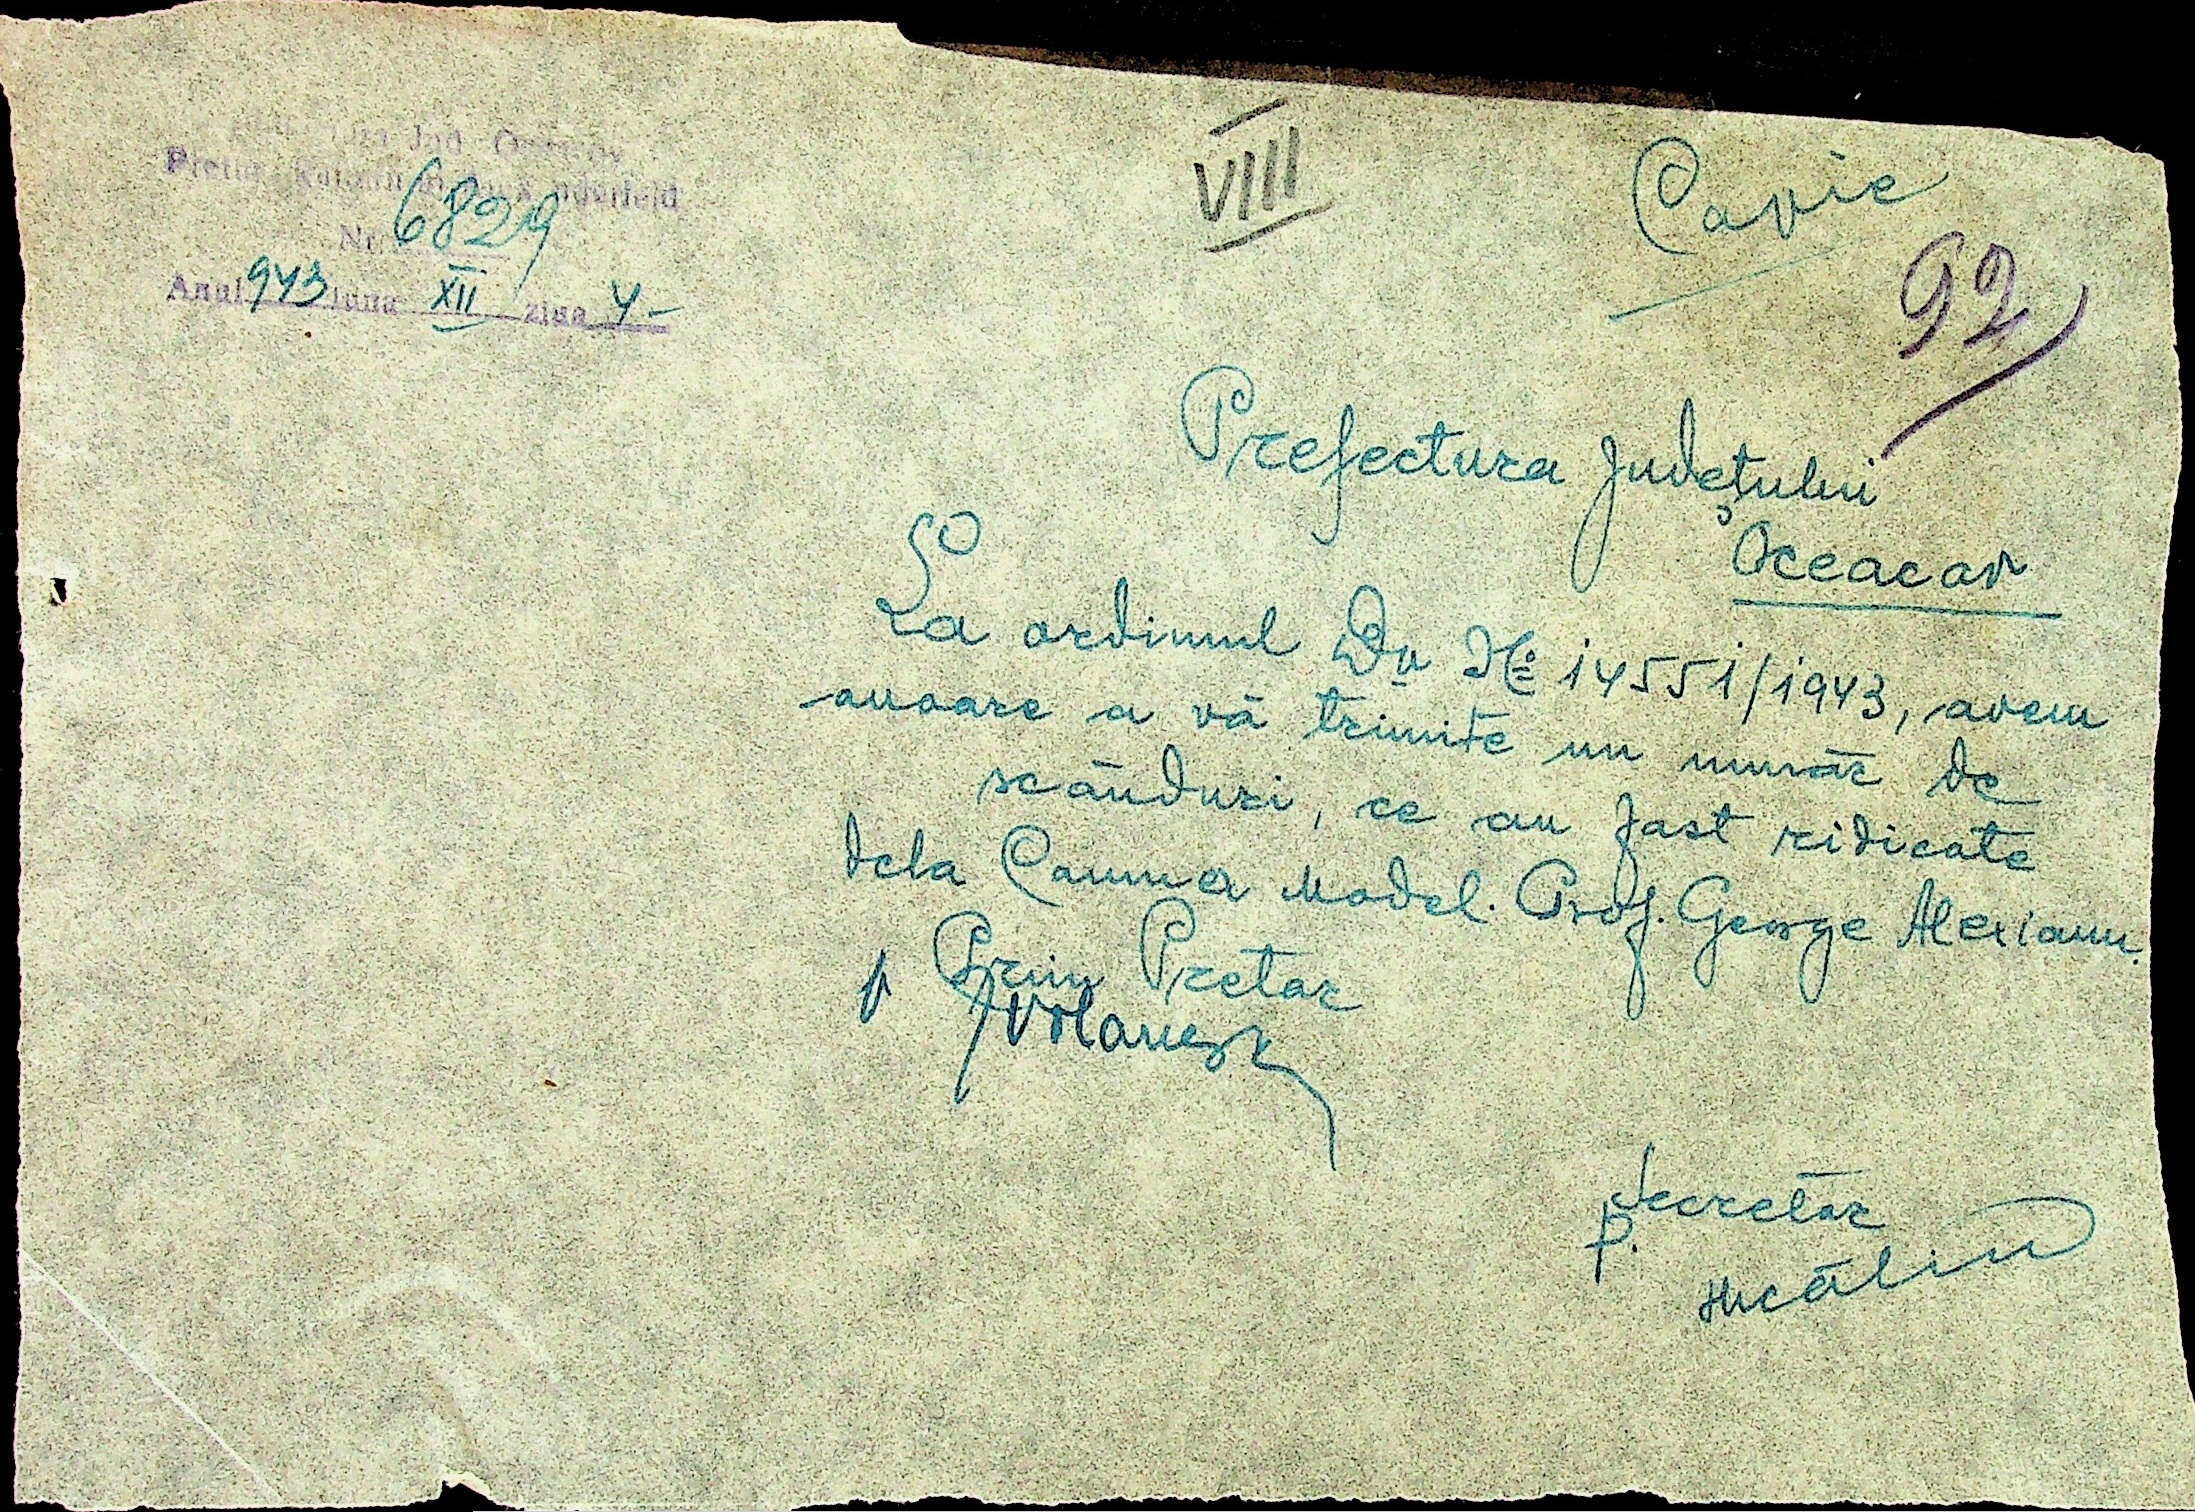 Jud.
Nr. 6829
Anul 943 luna XII ziua 4-
VIII
Copie
92
Prefectura Județului
Oceacov
La ordinul Dv № 14551/1943, avem
onoare a vă trimite un număr de
scânduri, ce au fost ridicate
dela Comuna Model. Prof. George Alexianu.
p Prim Pretor
p. Secretar